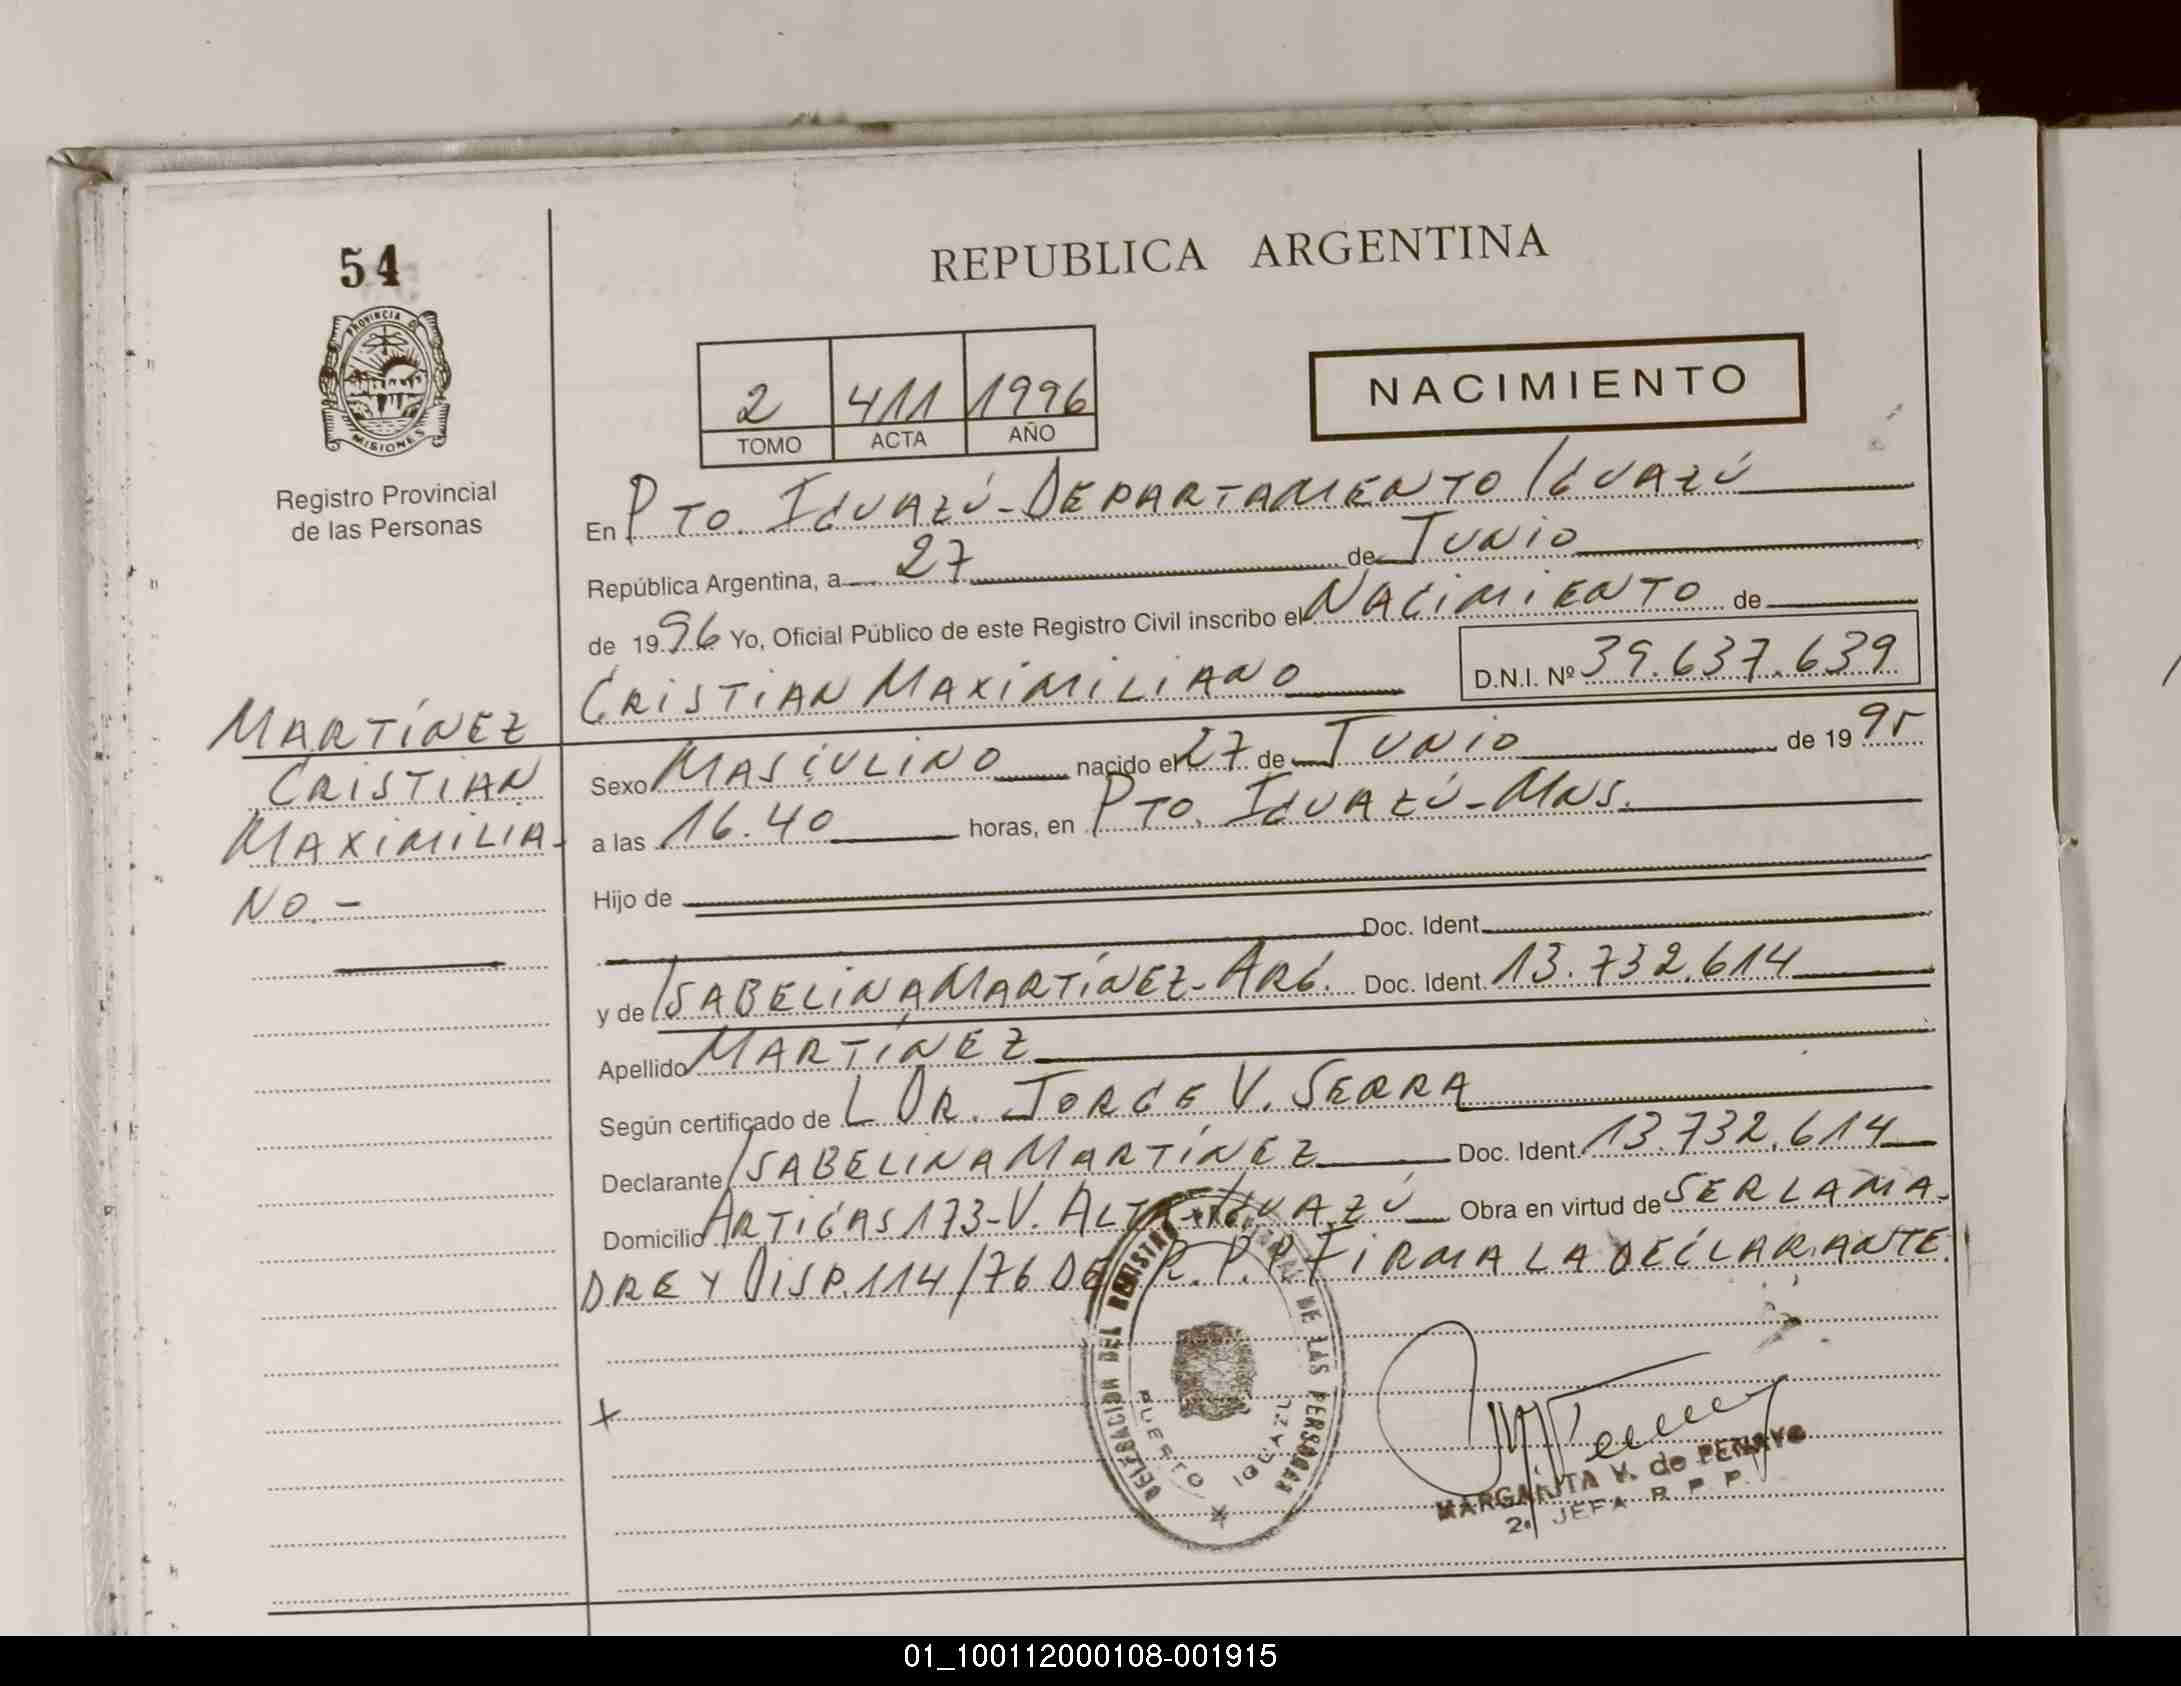 54
PROVINCIA D
MISIONES
Registro Provincial
de las Personas
REPUBLICA ARGENTINA
2 411 1996
TOMO ACTA AÑO
NACIMIENTO
En PTO. IGUAZÚ - DEPARTAMENTO IGUAZÚ
República Argentina, a 27 de JUNIO
de 1996 Yo, Oficial Público de este Registro Civil inscribo el NACIMIENTO de
CRISTIAN MAXIMILIANO D.N.I. Nº 39.637.639
MARTÍNEZ
CRISTIAN
MAXIMILIA-
NO.-
Sexo MASCULINO nacido el 27 de JUNIO de 1995
a las 16.40 horas, en PTO. IGUAZÚ - MNS.
Hijo de
Doc. Ident.
y de ISABELINA MARTÍNEZ - ARG. Doc. Ident. 13.732.614
Apellido MARTÍNEZ
Según certificado de L DR. JORGE V. SERRA
Declarante ISABELINA MARTÍNEZ Doc. Ident. 13.732.614
Domicilio ARTIGAS 173 - V. ALTA - IGUAZÚ Obra en virtud de SER LA MA-
DRE Y DISP. 114/76 DE R.P.P. FIRMA LA DECLARANTE.
X
DELEGACION DEL REGISTRO DE LAS PERSONAS
PUERTO IGUAZU
MARGARITA V. de PENAYO
2. JEFA R. P. P.
01_100112000108-001915